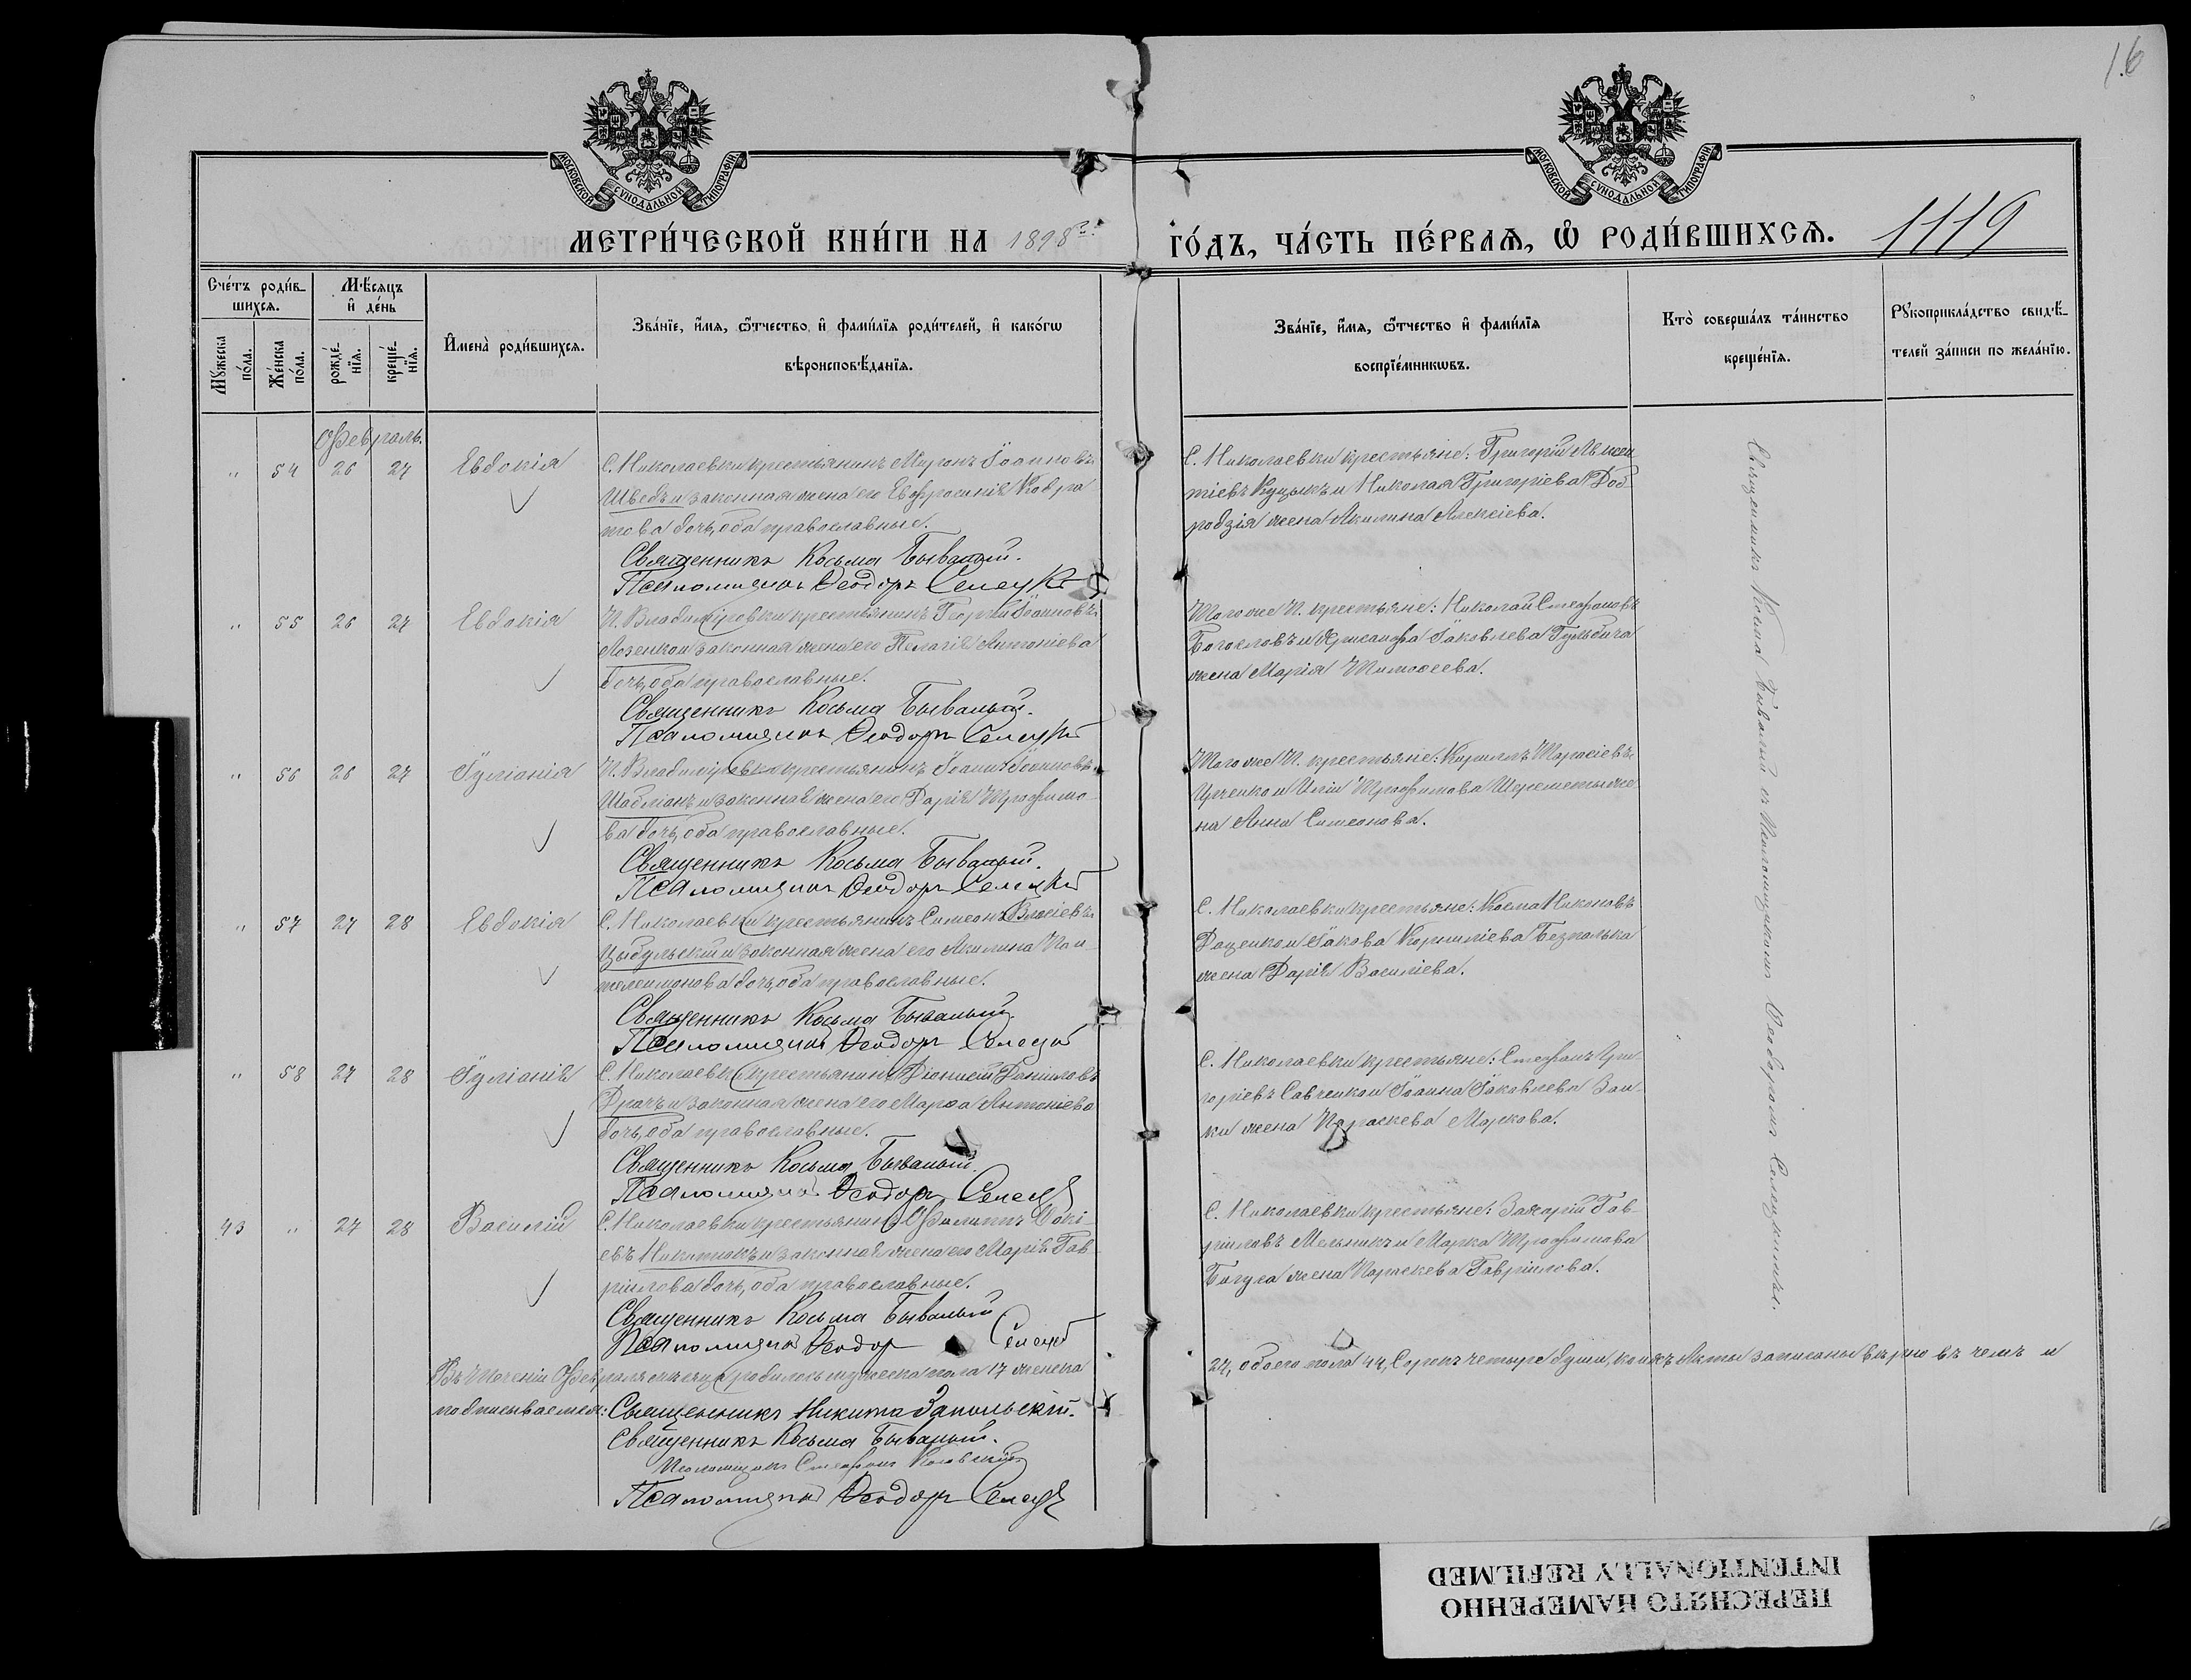 16
МОСКОВСКОЙ СѴНОДАЛЬНОЙ ТИПОГРАФІИ
МОСКОВСКОЙ СѴНОДАЛЬНОЙ ТИПОГРАФІИ
МЕТРИ́ЧЕСКОЙ КНИ́ГИ НА 1898 ГО́ДЪ, ЧА́СТЬ ПЕ́РВАѦ, Ѡ҆ РОДИ́ВШИХСѦ. 1119
Сче́тъ роди́вшихсѧ.
Мѣ́сѧцъ и҆ де́нь
Мꙋ́жеска по́ла.
Же́нска по́ла.
рожде́нїѧ.
креще́нїѧ.
И҆мена̀ роди́вшихсѧ.
Зва́нїе, и҆́мѧ, ѻ҆́тчество, и҆ фами́лїѧ роди́телей, и҆ како́гѡ
вѣроисповѣ́данїѧ.
Зва́нїе, и҆́мѧ, ѻ҆́тчество и҆ фами́лїѧ
воспрїе́мникѡвъ.
Кто̀ соверша́лъ та́инство
креще́нїѧ.
Рꙋкоприкла́дство свидѣ́телей за́писи по жела́нїю.
Февраль.
" 54 26 27 Евдокія
С. Николаевки крестьянинъ Миронъ Іоанновъ
Шведъ и законная жена его Евфросинія Кодра
това дочь, оба православные.
Священникъ Косьма Бывалый.
Псаломщикъ Ѳеодоръ Селецкій
С. Николаевки крестьяне: Григорій
тіевъ Куцыкъ и Николая Григоріева Доб
родзія жена Акилина Алексіева.
" 55 26 27 Евдокія
П. Владиміровки крестьянинъ Георгій Іоанновъ
Лозенко и законная жена его Пелагія Антоніева
дочь, оба православные.
Священникъ Косьма Бывалый.
Псаломщикъ Ѳеодоръ Селецкій
Того же П. крестьяне: Николай Стефановъ
Богословъ и Іаковлева
жена Марія Тимоѳеева.
" 56 26 27 Іуліанія
П. Владиміровки крестьянинъ Іоаннъ Іоанновъ
и законная жена его Дарія Трофимо
ва дочь, оба православные.
Священникъ Косьма Бывалый.
Псаломщикъ Ѳеодоръ Селецкій
Того же П. крестьяне: Кириллъ Тарасіевъ
и Трофимова Шереметы же
на Анна Симеонова.
" 57 27 28 Евдокія
С. Николаевки крестьянинъ Симеонъ Власіевъ
Цыбульскій и законная жена его Акилина Пан
телеимонова дочь, оба православные.
Священникъ Косьма Бывалый.
Псаломщикъ Ѳеодоръ Селецкій
С. Николаевки крестьяне: Косма Никоновъ
Даценко и Іакова Корниліева Безпалька
жена Дарія Василіева.
" 58 27 28 Іуліанія
С. Николаевки крестьянинъ Діонисій Даніиловъ
Драчъ и законная жена его Марѳа Антоніева
дочь, оба православные.
Священникъ Косьма Бывалый.
Псаломщикъ Ѳеодоръ Селецкій
С. Николаевки крестьяне: Стефанъ Гри
горіевъ Савченко и Іоанна Іаковлева Заи
ки жена Параскева Маркова.
43 " 27 28 Василій
С. Николаевки крестьянинъ Филиппъ
евъ и законная жена его Марія Гав
ріилова дочь, оба православные.
Священникъ Косьма Бывалый
Псаломщикъ Ѳеодоръ Селецкій
С. Николаевки крестьяне: Захарій Гав
ріиловъ Мельникъ и Марка Трофимова
жена Параскева Гавріилова.
Священникъ Косма Бывалый съ Псаломщикомъ Ѳеодоромъ Селецкимъ.
Въ теченіи Февраля мѣсяца родилось мужеска пола 17 женска
27, обоего пола 44, Сорокъ четыре души, коихъ Акты записаны вѣрно въ чемъ и
подписываемся: Священникъ Никита Запольскій.
Священникъ Косьма Бывалый.
Псаломщикъ Стефанъ
Псаломщикъ Ѳеодоръ Селецкій
ПЕРЕСНЯТО НАМЕРЕННО
INTENTIONALLY REFILMED